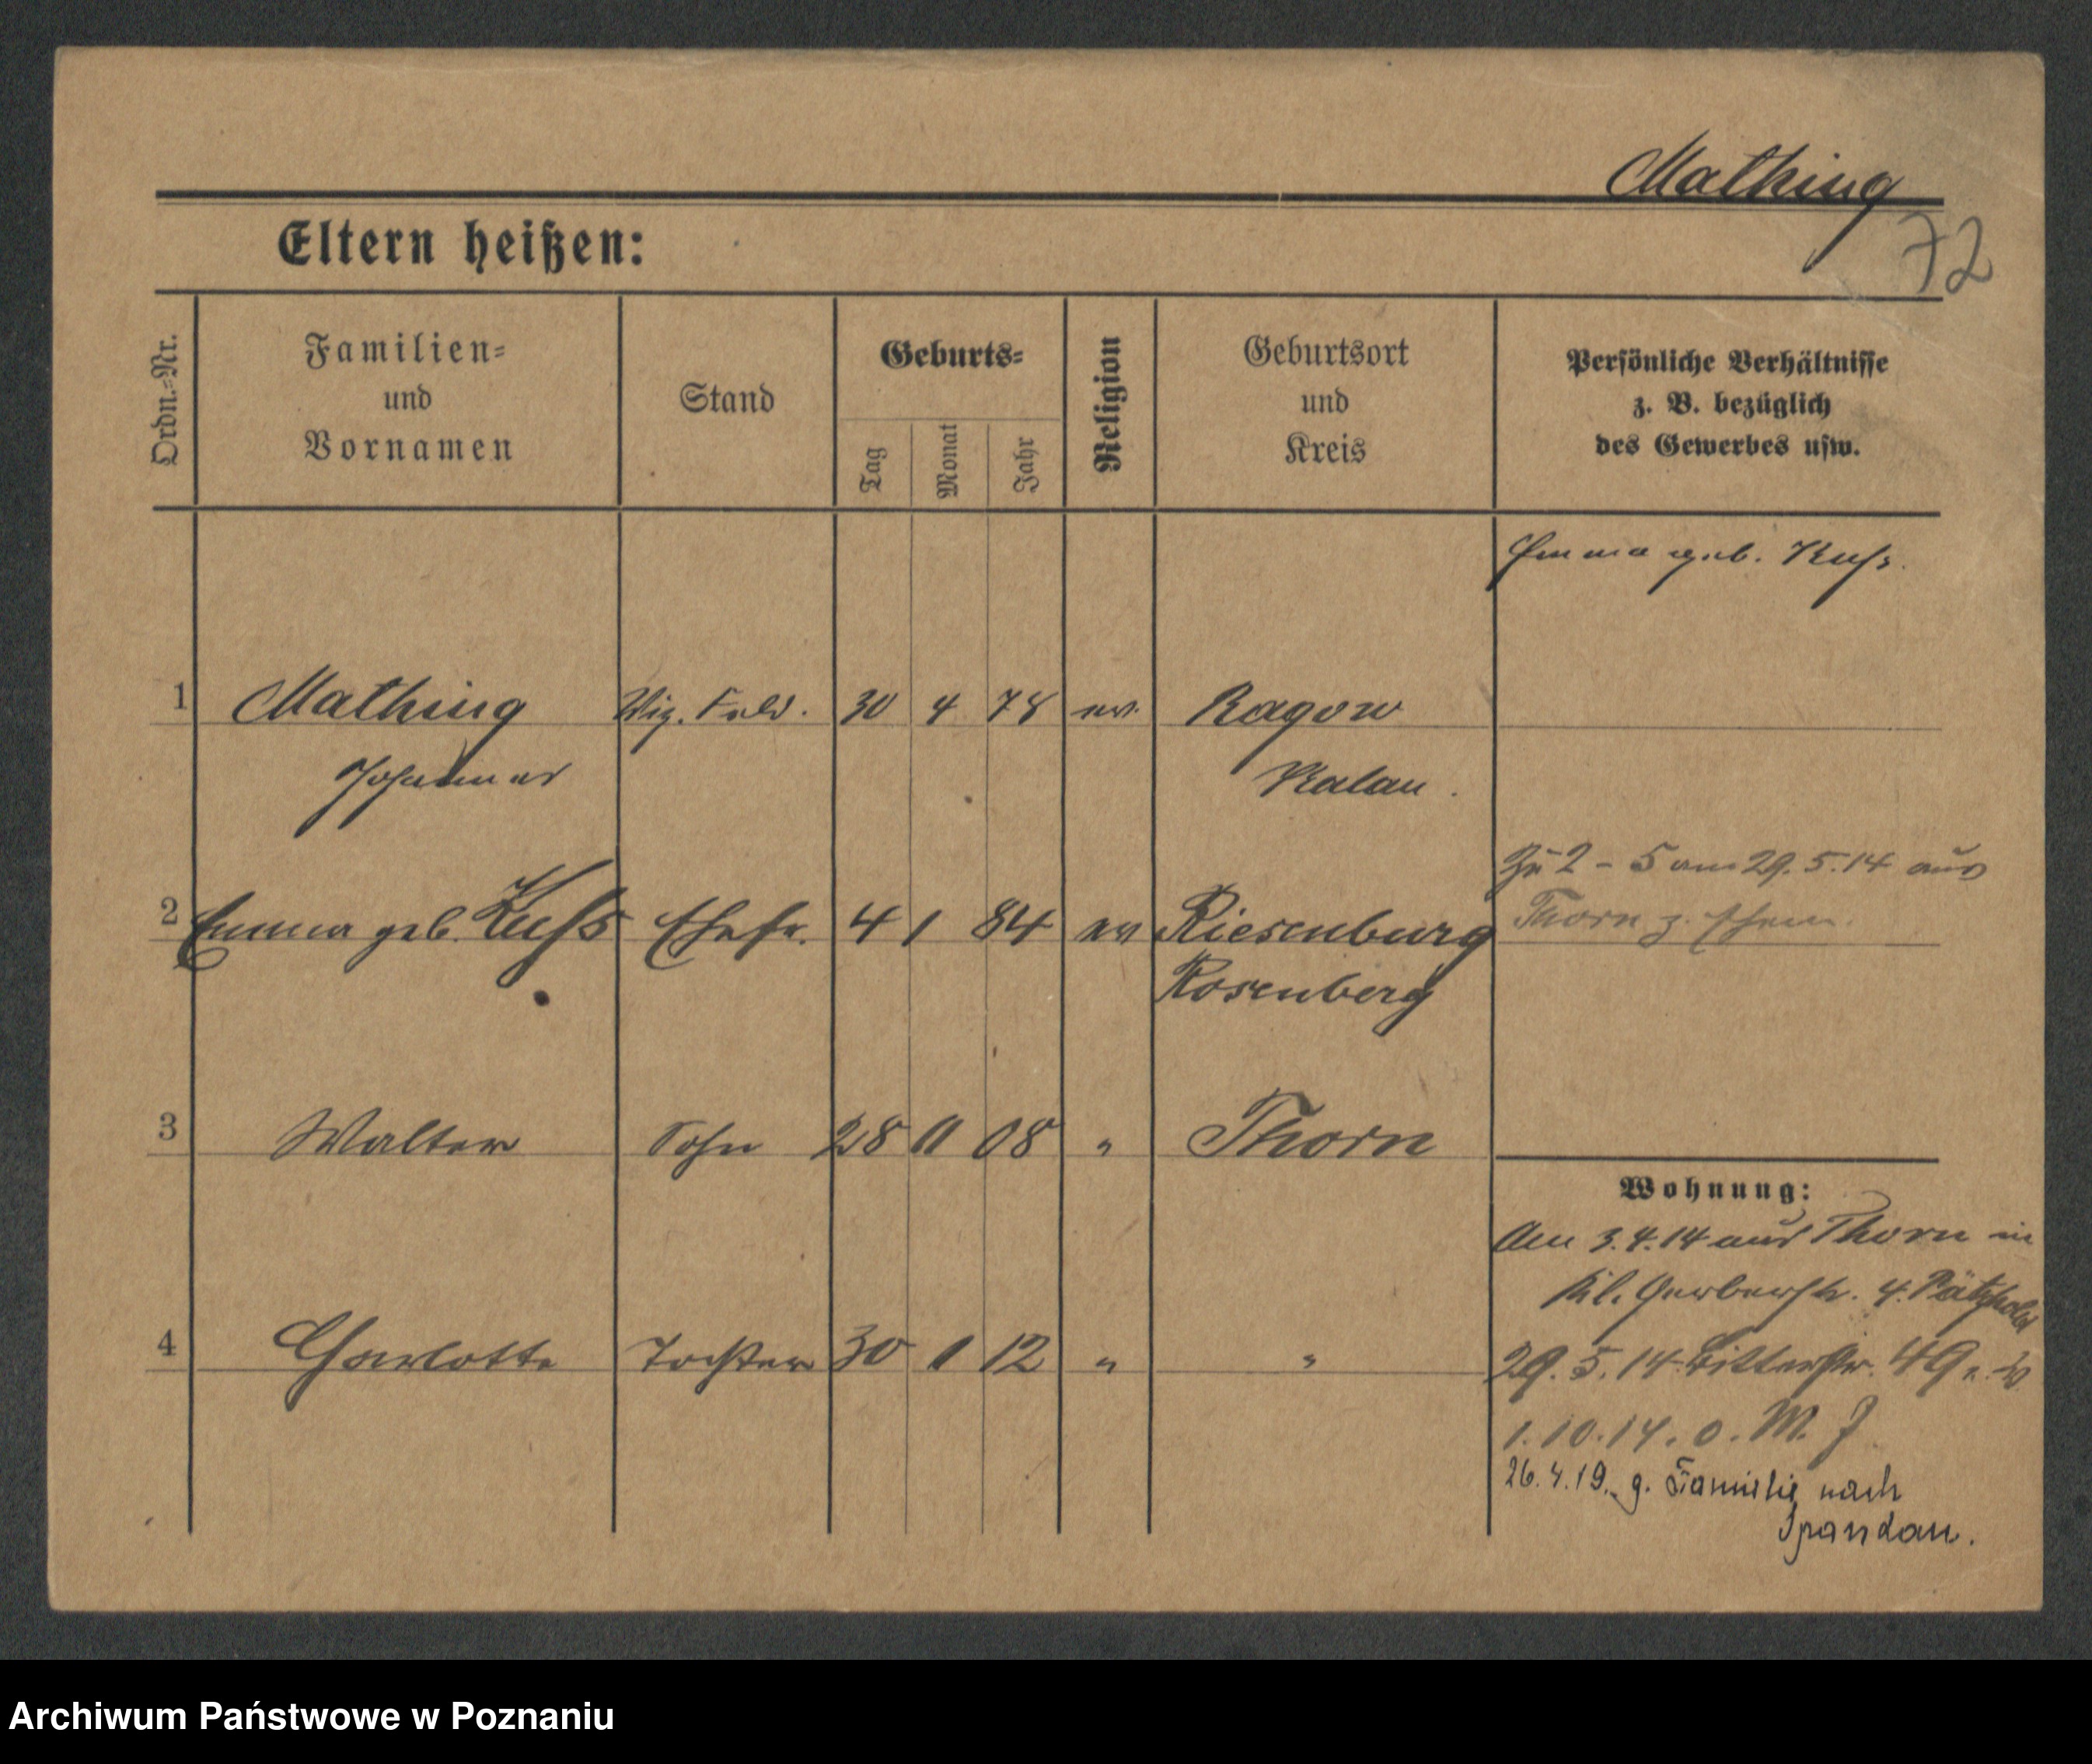 Mathing
72
Eltern heißen:
Ordn.-Nr.
Familien-
und
Vornamen
Stand
Geburts-
Tag
Monat
Jahr
Religion
Geburtsort
und
Kreis
Persönliche Verhältnisse
z. B. bezüglich
des Gewerbes usw.
Emma geb. Kuss.
1 Mathing Viz. Feld. 30 4 78 ev. Ragow
Johannes Kalau.
Zu 2 - 5 am 29.5.14 aus
2 Emma geb. Kuss Ehefr. 4 1 84 ev Riesenburg Thorn z. Ehem.
Rosenberg
3 Walter Sohn 28 11 08 " Thorn
Wohnung:
Am 3.4.14 aus Thorn in
Kl. Gerberstr. 4. Pätzold
4 Charlotte Tochter 30 1 12 " "
29.5.14 Ritterstr.
1.10.14. o. M. J
26.4.19. g. Familie nach
Spandau.
Archiwum Państwowe w Poznaniu